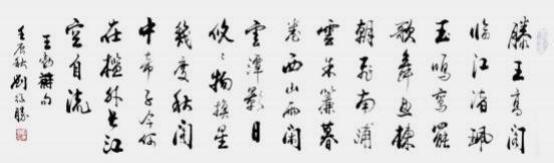 滕王高阁
临江渚珮
玉鸣鸾罢
歌舞画栋
朝飞南浦
雲朱簾暮
卷西山雨闲
雲潭影日
悠〻物换星
幾度秋阁
中帝子今何
在槛外长江
空自流
王勃诗句
壬辰秋刘